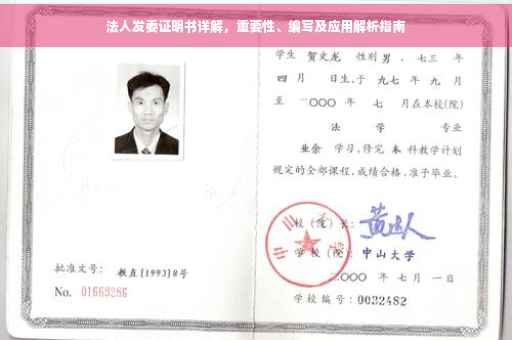 法人发委证明书详解，重要性、编写及应用解析指南
学生 贺文龙 性别 男 、七三 年
四 月 日生,于 九七 年 九 月
至 二〇〇〇 年 七 月在本校(院)
法 学 专业
业余 学习,修完 本 科教学计划
规定的全部课程,成绩合格,准予毕业。
校(院)长:
学校(院): 中山大学
二〇〇〇 年 七 月 一 日
批准文号: 教直[1993]8号
No. 01669286
学校编号: 0032482